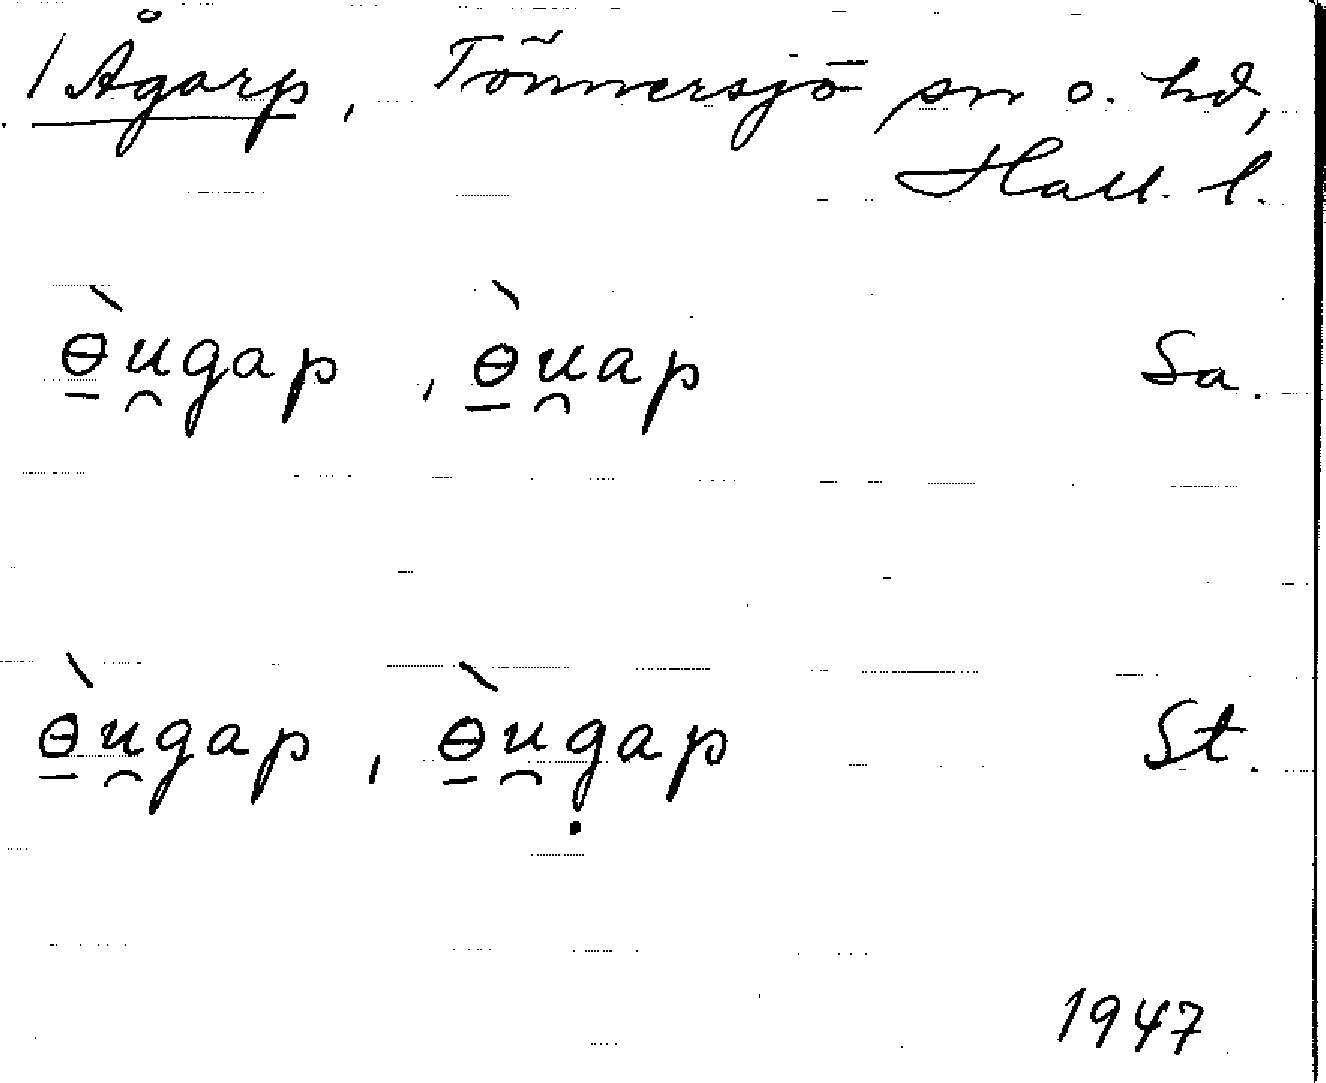 / Ågarp, Tönnersjö sn o. hd,
Hall. l.
ɵ̱̀u̯gap, ɵ̱̀u̯ap Sa.
ɵ̱̀u̯gap, ɵ̱̀u̯g̣ap St.
1947